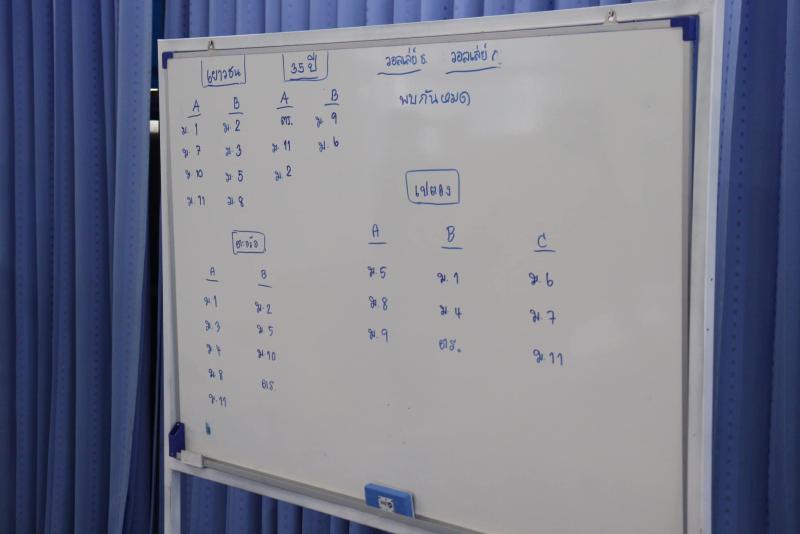 เยาวชน
A B
ม.1 ม.2
ม.7 ม.3
ม.10 ม.5
ม.11 ม.8
35 ปี
A B
ตร. ม.9
ม.11 ม.6
ม.2
วอลเล่ย์ ช. วอลเล่ย์ ญ.
พบกันหมด
ตะกร้อ
A B
ม.1 ม.2
ม.3 ม.5
ม.4 ม.10
ม.8 ตร.
ม.11
เปตอง
A B C
ม.5 ม.1 ม.6
ม.8 ม.4 ม.7
ม.9 ตร. ม.11